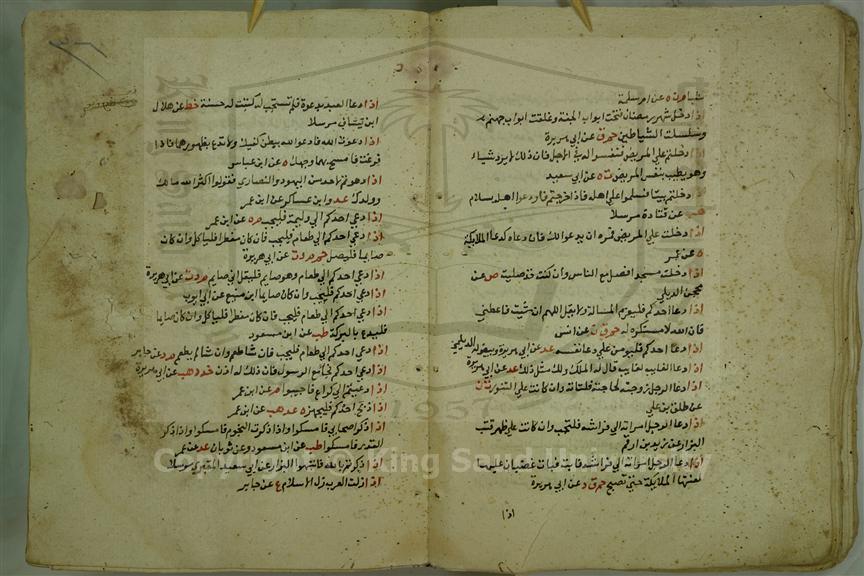 شيا م ن ه عن ام سلمة
اذا دخل شهر رمضان فتحت ابواب الجنة وغلقت ابواب جهنم
وسلسلت الشياطين حم ق عن ابي هريرة
اذا دخلتم على المريض فنفسوا له في الاجل فان ذلك لا يرد شياء
وهو يطيب بنفس المريض ت ه عن ابي سعيد
اذا دخلتم بيتا فسلموا على اهله فاذا خرجتم فاودعوا اهله بسلام
هب عن قتادة مرسلا
اذا دخلت على المريض فمره ان يدعو لك فان دعاه كدعا الملايكة
ه عن عمر
اذا دخلت مسجدا فصل مع الناس وان كنت قد صليت ص عن
محجن الديلي
اذا دعا احدكم فليعزم المسالة ولا يقل اللهم ان شئت فاعطني
فان الله لا مستكره له حم ق ن عن انس
اذا دعا احدكم فليومن على دعا نفسه عد عن ابي هريرة وبيض له الديلمي
اذا دعا الغايب لغايب قال له الملك ولك مثل ذلك عد عن ابي هريرة
اذا دعا الرجل زوجته لحاجته فلتاته وان كانت على التنور ت ن
عن طلق بن علي
اذا دعا الرجل امراته الى فراشه فلتجب وان كانت على ظهر قتب
البزار عن زيد بن ارقم
اذا دعا الرجل امراته الى فراشه فابت فبات غضبان عليها
لعنتها الملايكة حتى تصبح حم ق د عن ابي هريرة
اذا
اذا دعا العبد بدعوة فلم تستجب له كتبت له حسنة خط عن هلال
ابن يساف مرسلا
اذا دعوت الله فادعو الله ببطن كفيك ولا تدع بظهورهما فاذا
فرغت فامسح بهما وجهك ه عن ابن عباس
اذا دعوتم لاحد من اليهود والنصارى فقولوا اكثر الله مالك
وولدك عد وابن عساكر عن ابن عمر
اذا دعي احدكم الى وليمة فليجب م ه عن ابن عمر
اذا دعي احدكم الى طعام فليجب فان كان مفطرا فلياكل وان كان
صايما فليصل حم م د ت عن ابي هريرة
اذا دعي احدكم الى طعام وهو صايم فليقل اني صايم م د ت عن ابي هريرة
اذا دعي احدكم فليجب وان كان صايما ابن منيع عن ابي ايوب
اذا دعي احدكم الى طعام فليجب فان كان مفطرا فلياكل وان كان صايما
فليدع بالبركة طب عن ابن مسعود
اذا دعي احدكم الى طعام فليجب فان شا طعم وان شا لم يطعم م د عن جابر
اذا دعي احدكم فجا مع الرسول فان ذلك له اذن خد د هب عن ابي هريرة
اذا دعيتم الى كراع فاجيبوا م عن ابن عمر
اذا ذبح احدكم فليجهز ه عد هب عن ابن عمر
اذا ذكر اصحابي فامسكوا واذا ذكرت النجوم فامسكوا واذا ذكر
القدر فامسكوا طب عن ابن مسعود وعن ثوبان عد عن عمر
اذا ذكرتم بالله فانتهوا البزار عن ابي سعيد المقبري مرسلا
اذا ذلت العرب ذل الاسلام ع عن جابر
1957
Copyright © King Saud University